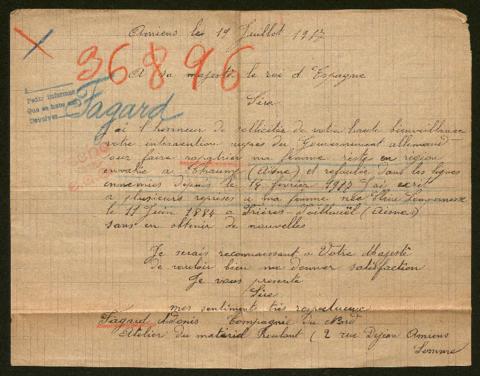 Amiens les 19 Juillot 1917
36896
A sa majesté le roi d'Espagne
Pedir informes
Que se hate
Devolver
Fagard
Sire
J'ai l'honneur de sollicités de votre haute bienveillance
votre intervention du Gouvernement allemand
pour faire rapatrier ma femme restés en region
envahie a Chauny (Aisne) et refouler dans les lignes
ennemies depuis le 14 fevrier 1917 J'ai ecrit
a plusieurs reprises a ma femme née
le 11 Juin 1884 a Frières-Faillouël (Aisne)
sans en obtenir de nouvelles
Je serais reconnaissant a Votre Majesté
de vouloir bien me donner satisfaction
Je vous presente
Sire
mes sentiments très respectueux
Fagard Adonis Compagnie du Nord
Atelier du matériel Roulant (2 rue Dejean Amiens
Somme